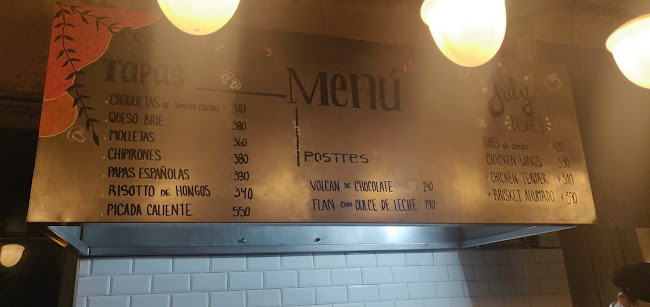 TAPAS
. CROQUETAS DE JAMON CRUDO 310
. QUESO BRIE 380
. MOLLEJAS 360
. CHIPIRONES 380
. PAPAS ESPAÑOLAS 330
. RISOTTO DE HONGOS 340
. PICADA CALIENTE 550
Menú
POSTRES
VOLCAN DE CHOCOLATE 240
FLAN CON DULCE DE LECHE 190
July
DISHES
RIBS de cerdo 420
CHICKEN WINGS 330
CHICKEN TENDER
BRISKET AHUMADO